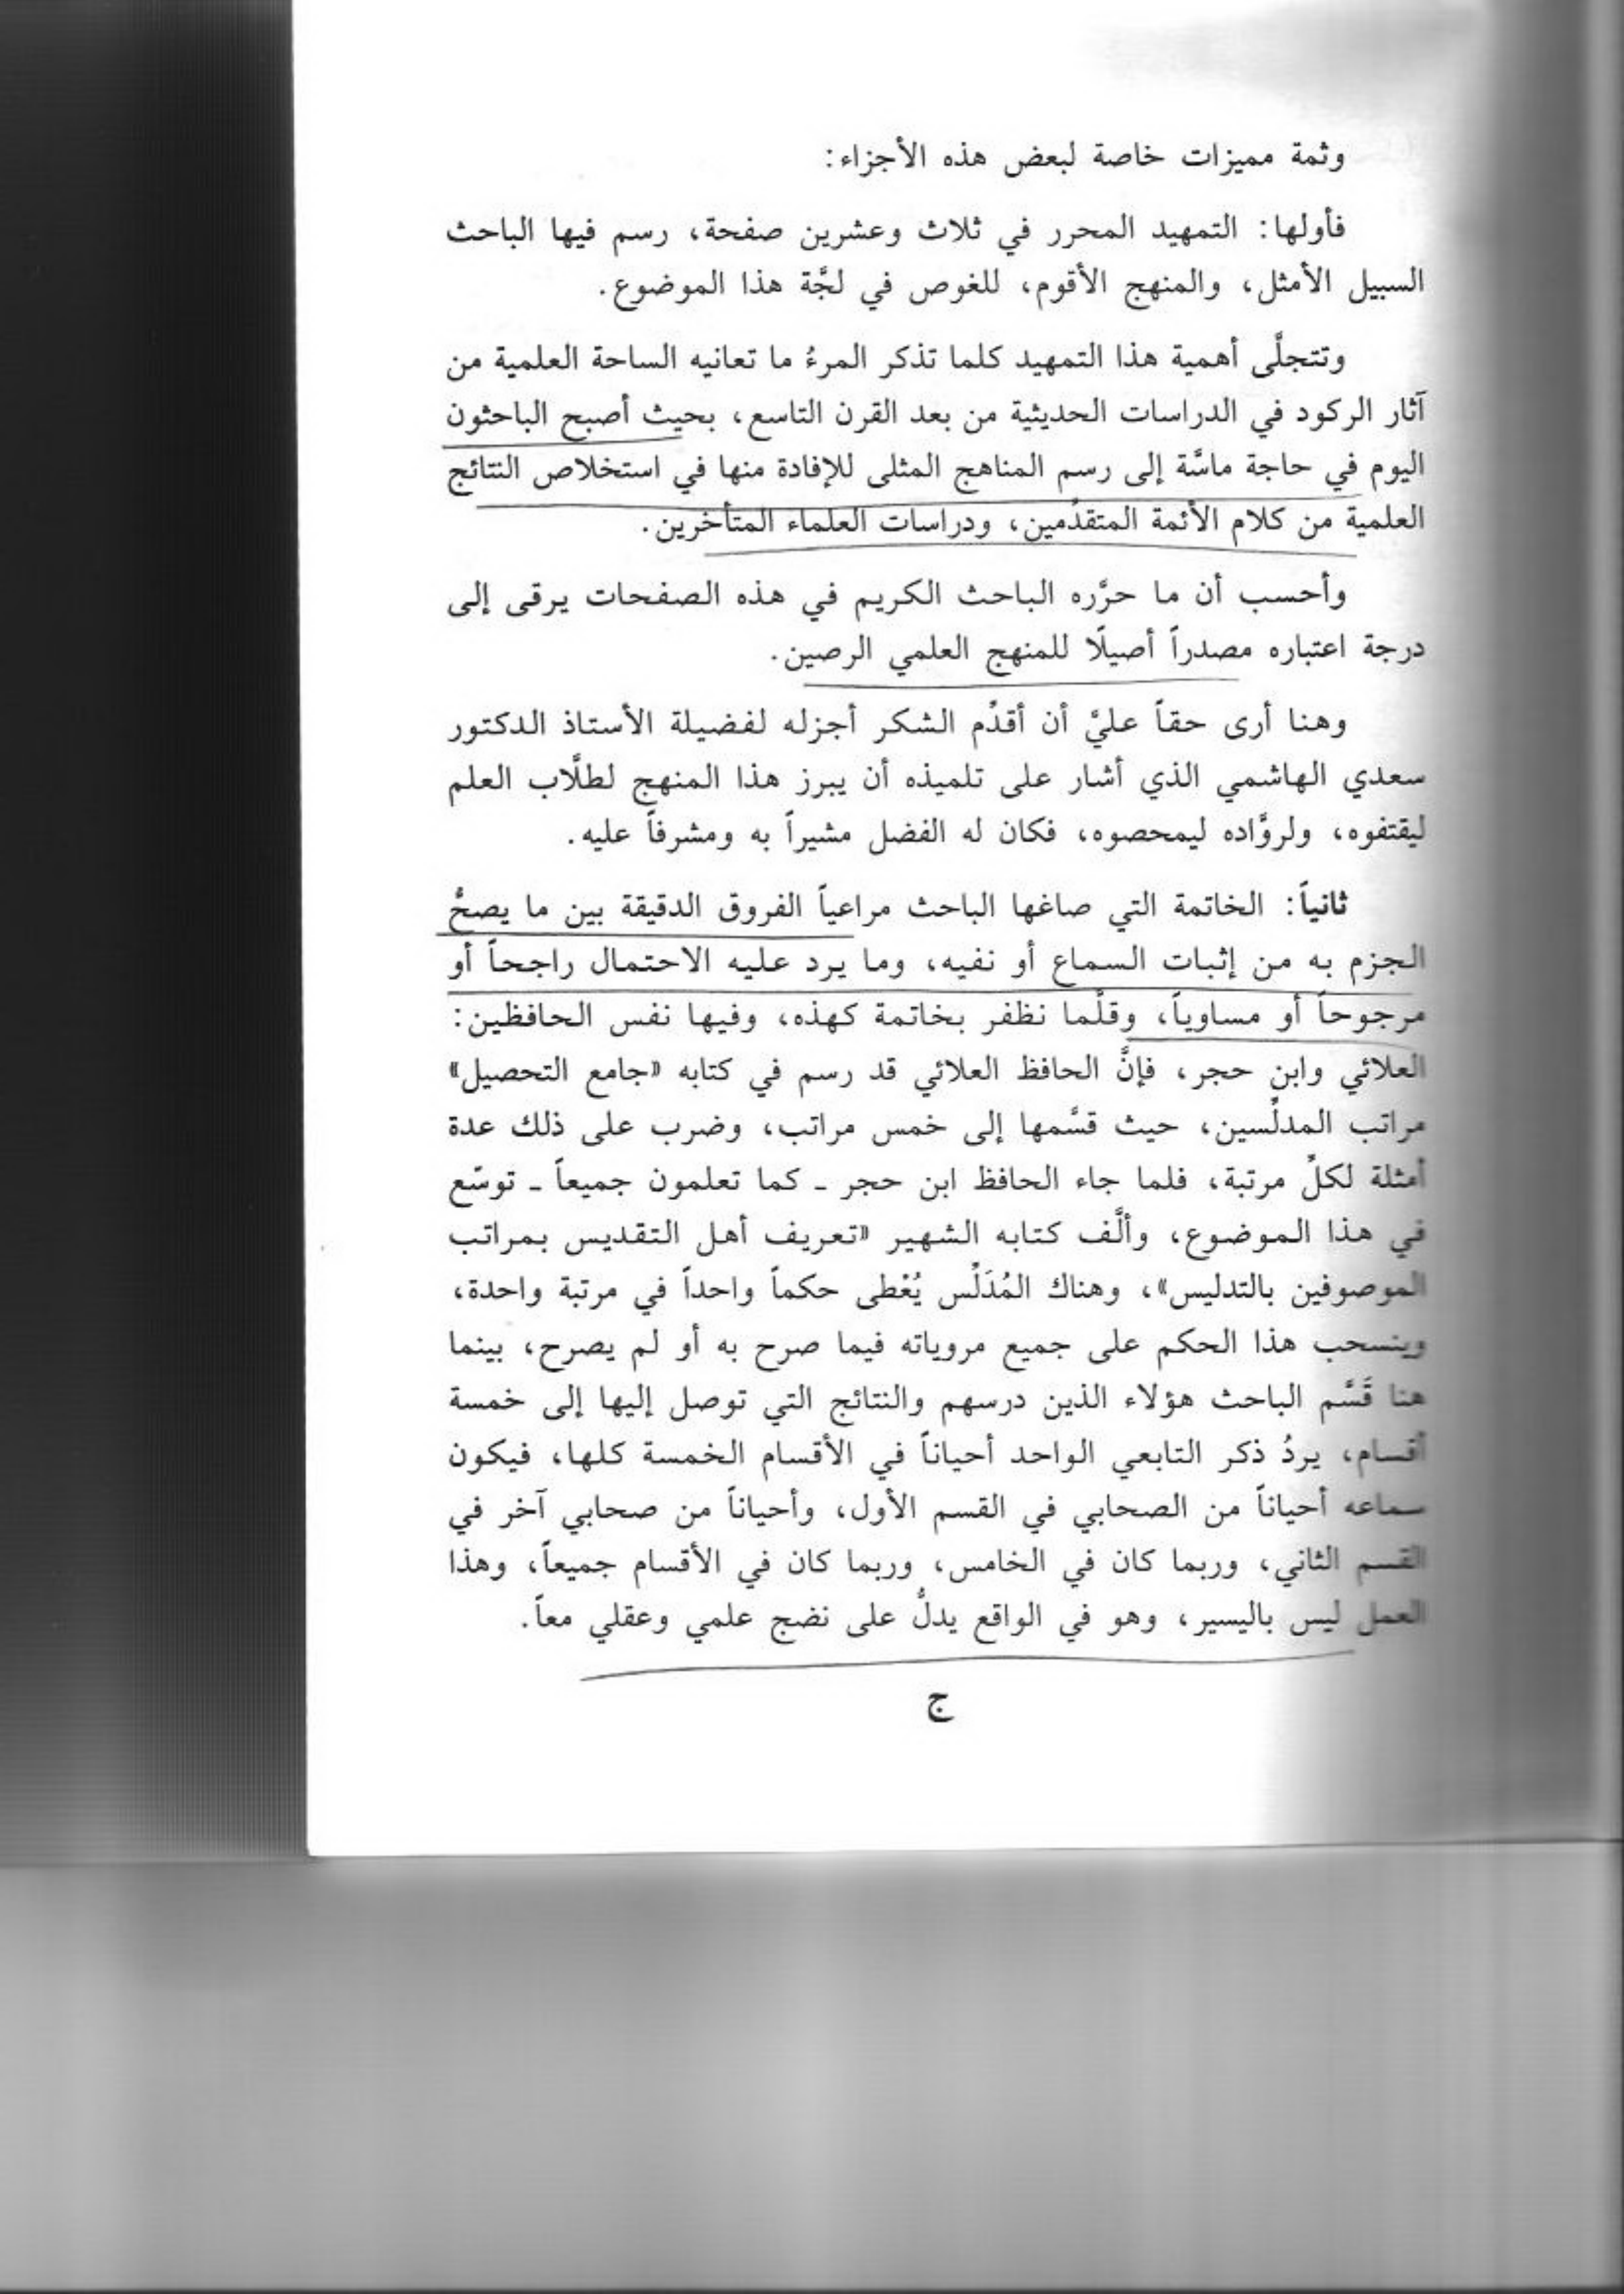 وثمة مميزات خاصة لبعض هذه الأجزاء:
فأولها: التمهيد المحرر في ثلاث وعشرين صفحة، رسم فيها الباحث
السبيل الأمثل، والمنهج الأقوم، للغوص في لجَّة هذا الموضوع.
وتتجلَّى أهمية هذا التمهيد كلما تذكر المرءُ ما تعانيه الساحة العلمية من
آثار الركود في الدراسات الحديثية من بعد القرن التاسع، بحيث أصبح الباحثون
اليوم في حاجة ماسَّة إلى رسم المناهج المثلى للإفادة منها في استخلاص النتائج
العلمية من كلام الأئمة المتقدِّمين، ودراسات العلماء المتأخرين.
وأحسب أن ما حرَّره الباحث الكريم في هذه الصفحات يرقى إلى
درجة اعتباره مصدراً أصيلًا للمنهج العلمي الرصين.
وهنا أرى حقاً عليَّ أن أقدِّم الشكر أجزله لفضيلة الأستاذ الدكتور
سعدي الهاشمي الذي أشار على تلميذه أن يبرز هذا المنهج لطلَّاب العلم
ليقتفوه، ولروَّاده ليمحصوه، فكان له الفضل مشيراً به ومشرفاً عليه.
ثانياً: الخاتمة التي صاغها الباحث مراعياً الفروق الدقيقة بين ما يصحُّ
الجزم به من إثبات السماع أو نفيه، وما يرد عليه الاحتمال راجحاً أو
مرجوحاً أو مساوياً، وقلَّما نظفر بخاتمة كهذه، وفيها نفس الحافظين:
العلائي وابن حجر، فإنَّ الحافظ العلائي قد رسم في كتابه «جامع التحصيل»
مراتب المدلِّسين، حيث قسَّمها إلى خمس مراتب، وضرب على ذلك عدة
أمثلة لكلِّ مرتبة، فلما جاء الحافظ ابن حجر ـ كما تعلمون جميعاً ـ توسّع
في هذا الموضوع، وألَّف كتابه الشهير «تعريف أهل التقديس بمراتب
الموصوفين بالتدليس»، وهناك المُدَلِّس يُعْطى حكماً واحداً في مرتبة واحدة،
وينسحب هذا الحكم على جميع مروياته فيما صرح به أو لم يصرح، بينما
هنا قَسَّم الباحث هؤلاء الذين درسهم والنتائج التي توصل إليها إلى خمسة
أقسام، يردُ ذكر التابعي الواحد أحياناً في الأقسام الخمسة كلها، فيكون
سماعه أحياناً من الصحابي في القسم الأول، وأحياناً من صحابي آخر في
القسم الثاني، وربما كان في الخامس، وربما كان في الأقسام جميعاً، وهذا
العمل ليس باليسير، وهو في الواقع يدلُّ على نضج علمي وعقلي معاً.
ج